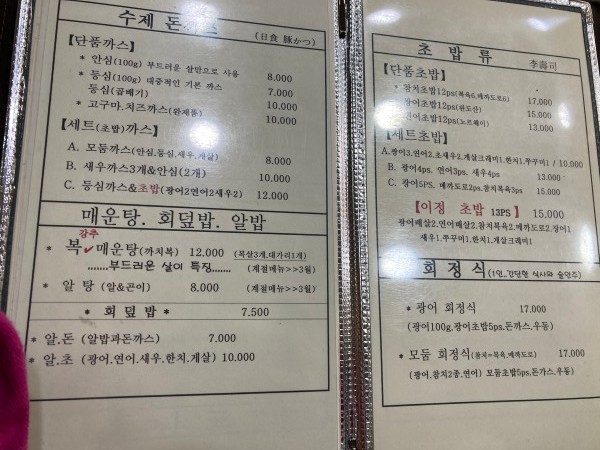 수제 돈까스 (日食 豚かつ)
【단품까스】
* 안심(100g) 부드러운 살만으로 사용 8.000
* 등심(100g) 대중적인 기본 까스 7.000
등심(곱빼기) 10.000
* 고구마.치즈까스(완제품) 10.000
【세트(초밥)까스】
A. 모듬까스(안심,등심,새우,게살) 8.000
B. 새우까스3개&안심(2개) 10.000
C. 등심까스&초밥(광어2연어2새우2) 12.000
매운탕. 회덮밥. 알밥
강추
* 복✓매운탕(까치복) 12.000 (목살3개,대가리1개)
.......부드러운 살이 특징....... (계절메뉴>>3월)
* 알 탕 (알&곤이) 8.000 (계절메뉴>>3월)
* 회 덮 밥 * 7.500
* 알.돈 (알밥과돈까스) 7.000
* 알.초 (광어.연어.새우.한치.게살) 10.000
초 밥 류 李壽司
【단품초밥】
* 참치초밥12ps(복육6,메까도로6) 17.000
광어초밥12ps(완도산) 15.000
연어초밥12ps(노르웨이) 13.000
【세트초밥】
A.광어3.연어2.초새우2.게살크래미1.한치1.쭈꾸미1 / 10.000
B. 광어4ps. 연어3ps. 새우4ps 13.000
C. 광어5PS. 메까도로2ps.참치복육3ps 15.000
【이정 초밥 13PS 】 15,000
광어배살2.연어배살2.참치복육2.메까도로2.장어1
새우1.쭈꾸미1.한치1.게살크래미1
회 정 식 (1인..간단한 식사와 술안주)
* 광어 회정식 17.000
(광어100g.광어초밥5ps.돈까스.우동)
* 모둠 회정식(참치=복육,메까도로) 17.000
(광어.참치2종.연어) 모듬초밥5ps.돈가스.우동)